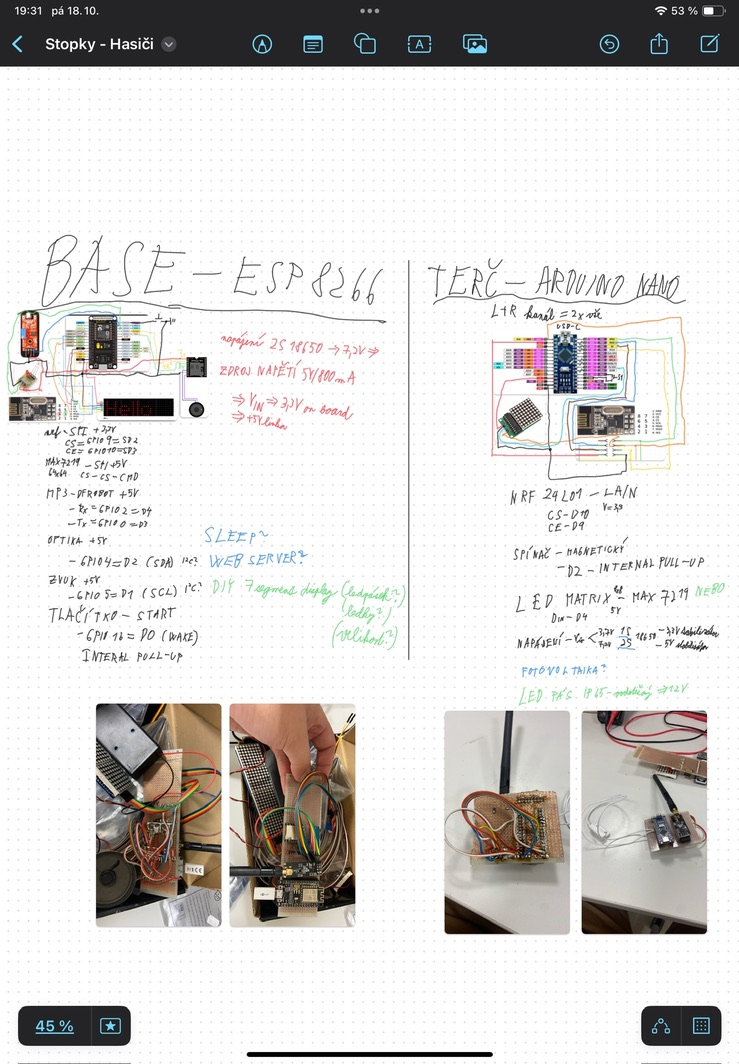 19:31 pá 18.10.
53 %
Stopky - Hasiči
A
BASE - ESP8266
napájení 2S 18650 → 7,2V ⇒
ZDROJ NAPĚTÍ 5V/800mA
⇒ VIN ⇒ 3,3V on board
⇒ +5V
nrf - SPI + 3,3V
CS = GPIO9 = SD2
CE = GPIO10 = SD3
MAX7219 - SPI +5V
64x64 CS - CS - CMD
MP3 - DFROBOT +5V
- Rx = GPIO2 = D4
- Tx = GPIO0 = D3
OPTIKA +5V
- GPIO4 = D2 (SDA) I²C?
ZVUK +5V
- GPIO5 = D1 (SCL) I²C?
TLAČÍTKO - START
- GPIO16 = D0 (WAKE)
INTERAL PULL-UP
SLEEP?
WEB SERVER?
DIY 7 segment display (ledpásek?)
(ledky?)
(velikost?)
TERČ - ARDUINO NANO
L+R kanál = 2x vše
USB-C
NRF 24L01 - LA/N
CS - D10 V=3,3
CE - D9
SPÍNAČ - MAGNETICKÝ
- D2 - INTERNAL PULL-UP
LED MATRIX 8x8 - MAX 7219 NEBO
5V
Din - D4
NAPÁJENÍ - 3,7V 1S 18650 - 3,3V
7,2V 2S - 5V
FOTOVOLTAIKA?
LED PÁS IP65 - ⇒ 12V
45 %